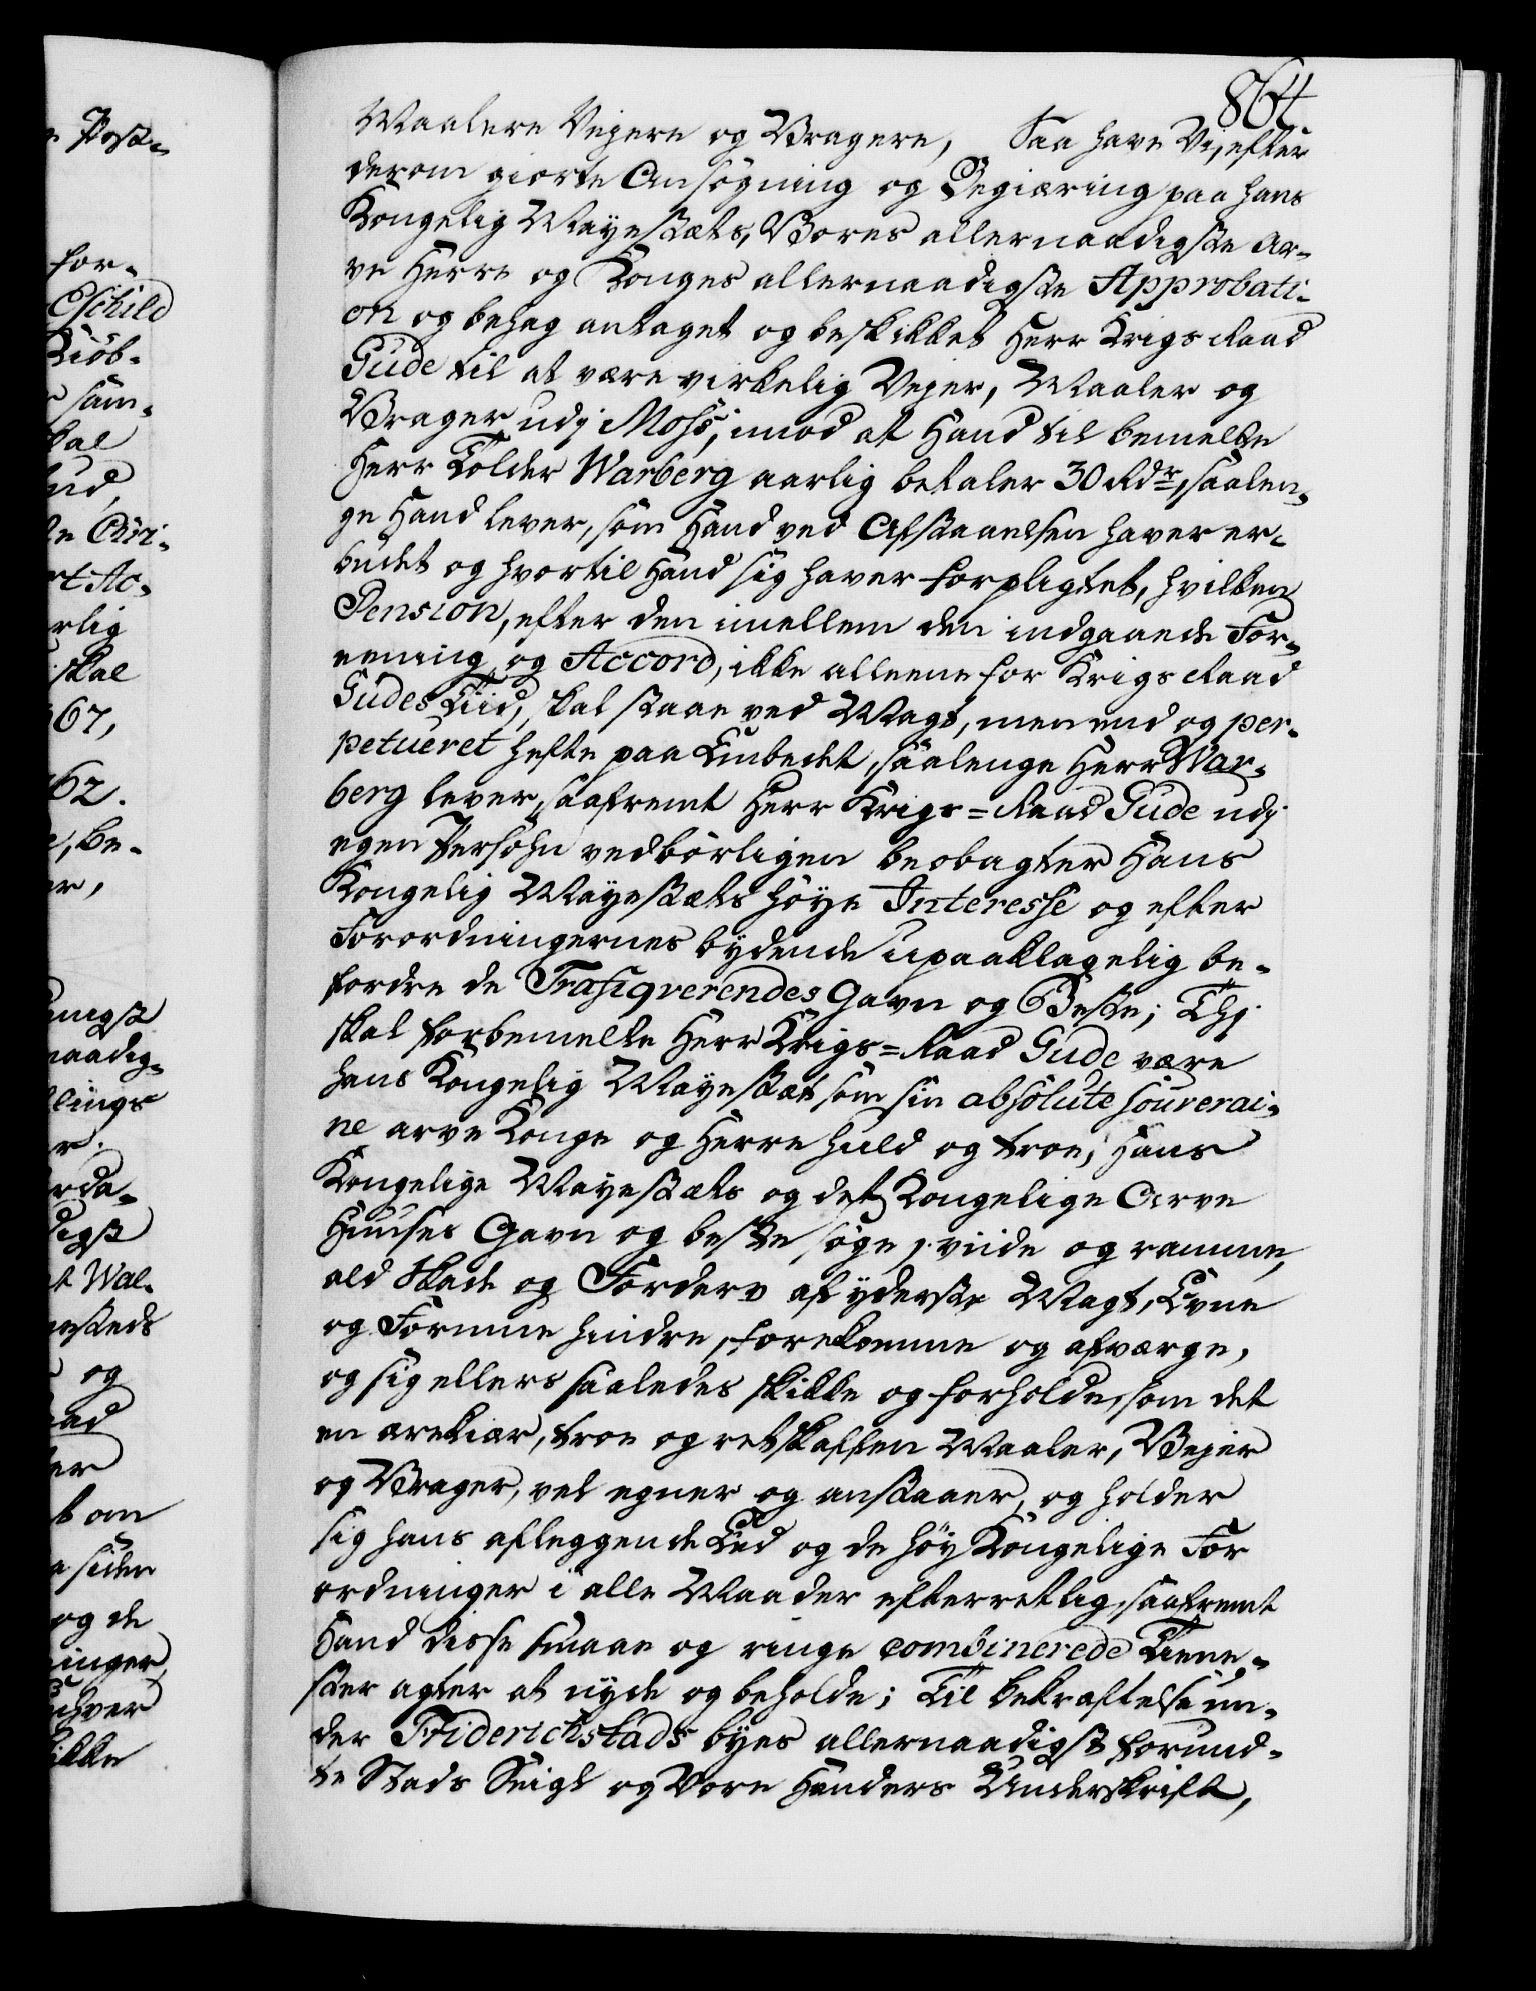 864
Maalere Vejere og Vragere, Saa have Vi, efter
derom giorte Ansögning og Begiæring paa hans
Kongelig Mayestæts, Vores allernaadigste Ar-
ve Herre og Konges allernaadigste Approbati-
on og behag antaget og beskikket Herr Krigs Raad
Gude til at være virkelig Vejer, Maaler og
Vrager udj Moss, imod at Hand til bemelte
Herr Tolder Warberg aarlig betaler 30 Rdr, saalen-
ge Hand lever, som Hand ved Afstaaelsen haver er-
budet og hvortil Hand sig haver forpligtet, hvilken
Pension, efter den imellem dem indgaaede For-
eening og Accord, ikke alleene for Krigs Raad
Gudes Tiid, skal staae ved Magt, men end og per-
petueret hefte paa Embedet, saalenge Herr War-
berg lever, saafremt Herr Krigs=Raad Gude udj
egen Persohn vedbörligen beobagter Hans
Kongelig Mayestæts höye Interesse og efter
Forordningernes bydende upaaklagelig be-
fordre de Trafiqverendes Gavn og Beste; Thj
skal forbemelte Herr Krigs=Raad Gude være
hans Kongelig Mayestæt som sin absolute souverai-
ne arve Konge og Herre huld og troe, Hans
Kongelige Mayestæts og det Kongelige Arve
Huuses Gavn og beste söge, viide og ramme,
ald Skade og Forderv af yderste Magt, Evne
og Formue hindre, forekomme og afværge,
og sig ellers saaledes skikke og forholde, som det
en ærekiær, troe og retskaffen Maaler, Vejer
og Vrager, vel egner og anstaaer, og holder
sig hans afleggende Eed og de höy Kongelige For
ordninger i alle Maader efterretlig, saafremt
Hand disse smaae og ringe combinerede Tiene-
ster agter at nyde og beholde; Til bekræftelse un-
der Friderichstads byes allernaadigst forund-
te Stads Seigl og Vore Hænders Underskrift,